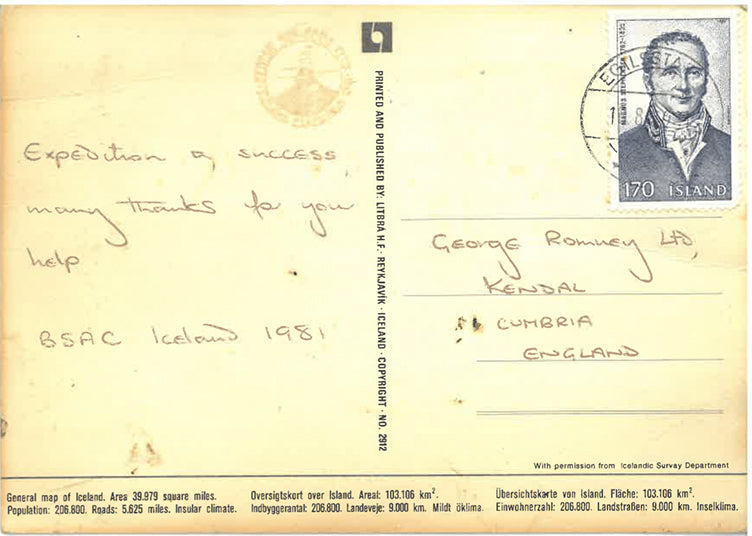 Expedition a success
many thanks for you
help
BSAC Iceland 1981
PRINTED AND PUBLISHED BY: LITBRA H.F. - REYKJAVÍK - ICELAND - COPYRIGHT - NO. 2912
EGILSSTA
MAGNÚS
170 ÍSLAND
George Romney Ltd,
KENDAL
CUMBRIA
ENGLAND
With permission from Icelandic Survay Department
General map of Iceland. Area 39.979 square miles.
Population: 206.800. Roads: 5.625 miles. Insular climate.
Oversigtskort over Island. Areal: 103.106 km².
Indbyggerantal: 206.800. Landeveje: 9.000 km. Mildt öklima.
Übersichtskarte von Island. Fläche: 103.106 km².
Einwohnerzahl: 206.800. Landstraßen: 9.000 km. Inselklima.